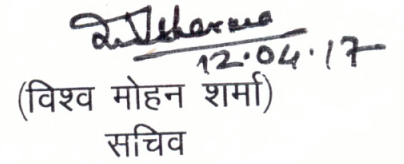 12.04.17
(विश्व मोहन शर्मा)
सचिव